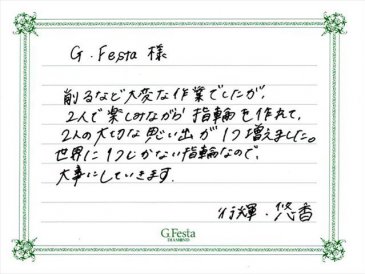 G.Festa 様
削るなど大変な作業でしたが、
2人で楽しみながら指輪を作れて、
2人の大切な思い出が1つ増えました。
世界に1つしかない指輪なので、
大事にしていきます。
行輝・悠香
G.Festa
DIAMOND